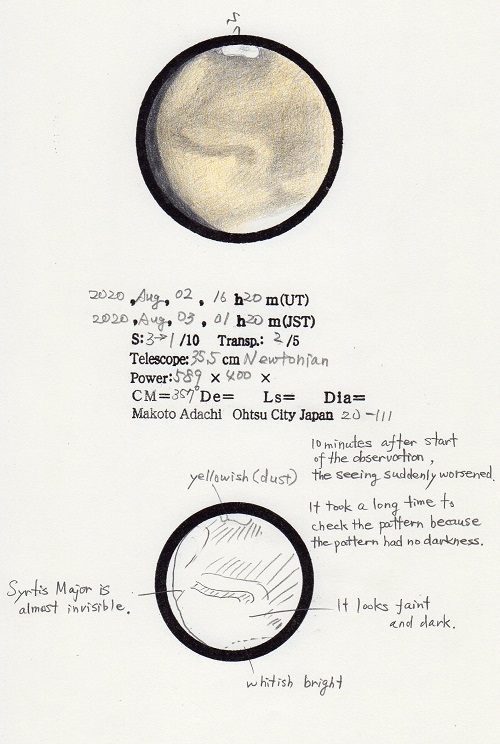 S
2020, Aug, 02, 16 h 20 m(UT)
2020, Aug, 03, 01 h 20 m(JST)
S: 3→1 /10 Transp.: 2 /5
Telescope: 35.5 cm Newtonian
Power: 589 × 400 ×
CM= 357° De= Ls= Dia=
Makoto Adachi Ohtsu City Japan 20-111
10 minutes after start
of the observation,
the seeing suddenly worsened.
yellowish (dust)
It took a long time to
check the pattern because
the pattern had no darkness.
Syrtis Major is
almost invisible.
It looks faint
and dark.
whitish bright